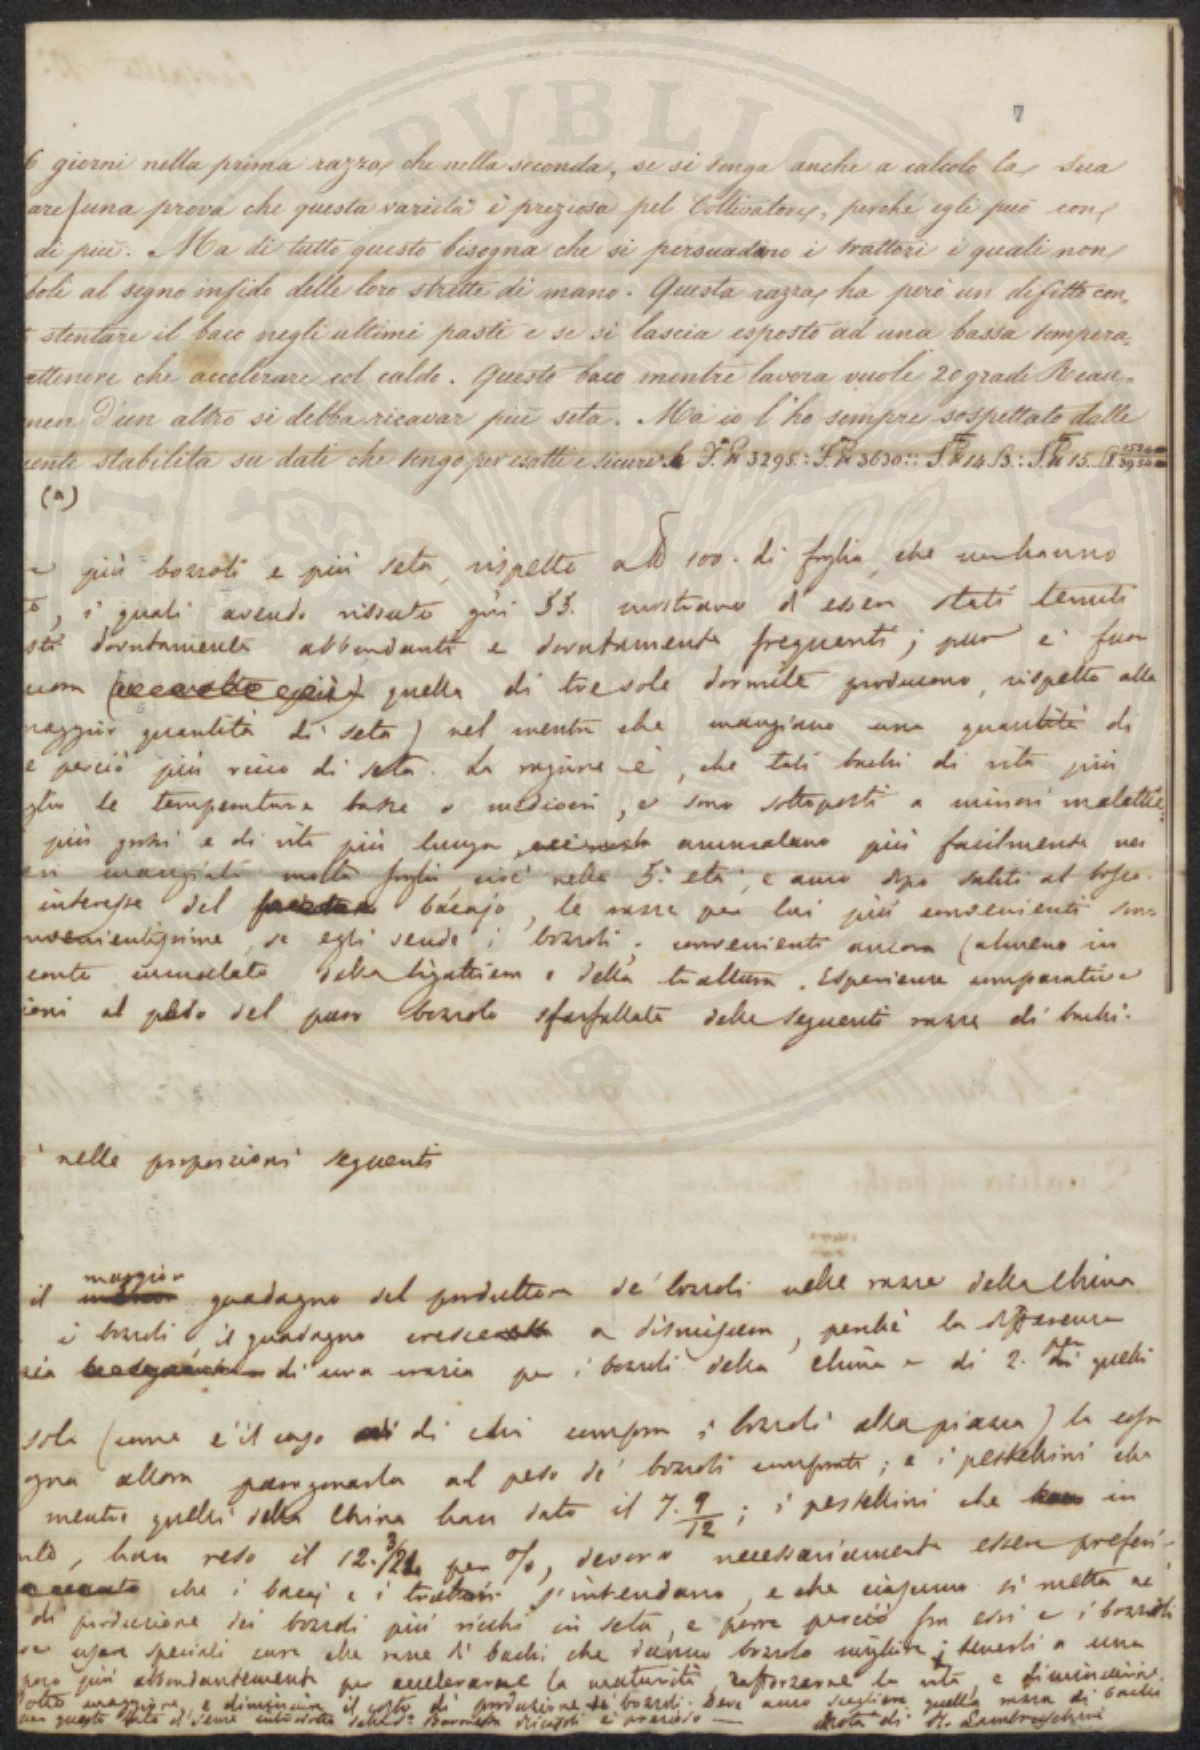 7
6 giorni nella prima razza, che nella seconda, se si tenga anche a calcolo la sua
are) una prova che questa varietà è preziosa pel Coltivatore, perchè egli può con
di più. Ma di tutto questo bisogna che si persuadino i trattori i quali non
boli al segno infido delle loro strette di mano. Questa razza, ha però un difetto con,
stentare il baco negli ultimi pasti e se si lascia esposto ad una bassa tempera,
attenere che accelerare col caldo. Questo baco mentre lavora vuole 20 gradi Reau=
men d'un altro si debba ricavar più seta. Ma io l'ho sempre sospettato dalle
uente stabilita su dati che tengo per esatti e sicuri 3295 :: 3630 :: 14 : 15
(a)
più bozzoli e più seta, rispetto a 100. di foglia, che non hanno
, i quali avendo vissuto 33. mostrano d'esser stati tenuti
sti dovutamente abbondanti e dovutamente frequenti; pur è fuor
quella di tre sole dormite producono, rispetto alla
maggior quantità di seta) nel mentre che mangiano una quantità di
e perciò più ricco di seta. La ragione è, che tali bachi di vita più
glio le temperature basse o mediocri, e sono sottoposti a minori malattie.
più grossi e di vita più lunga ammalano più facilmente nei
mangiata molta foglia cioè nella 5.a età, e anco dopo saliti al bosco.
interesse del bacajo, le razze per lui più convenienti sono
nvenientissime, se egli vende i bozzoli; convenienti ancora (almeno in
conto della e della trattura. Esperienze comparative
ioni al peso del puro bozzolo sfarfallato delle seguenti razze di bachi.
nelle proporzioni seguenti
il maggior guadagno del produttore de' bozzoli nelle razze della China
i bozzoli, il guadagno cresce a dismisura, perchè la differenza
di una crazia per i bozzoli della China e di 2. per quelli
sola (come è il caso di chi compra i bozzoli alla piazza) la cosa
gna allora paragonarla al peso de' bozzoli comprati; e i pestellini che
mentre quelli della China han dato il 7. 9/12; i pestellini che in
han reso il 12. per %, devono necessariamente esser preferi-
che i bacaj e i trattori s'intendano, e che ciascuno si metta
di produzione dei bozzoli più ricchi in seta, e porre perciò fra essi e i bozzoli
usare speciali cure alle razze di bachi che danno bozzolo migliore; tenerli a una
poco più abbondantemente per accelerarne la maturità, rafforzarne la vita e diminuirne
maggiore, e diminuire il costo di produzione de' bozzoli. Deve anco scegliere quella razza di bachi
questo seme introdotta dalla Baronessa Ricasoli è prezioso — Nota di R. Lambruschini